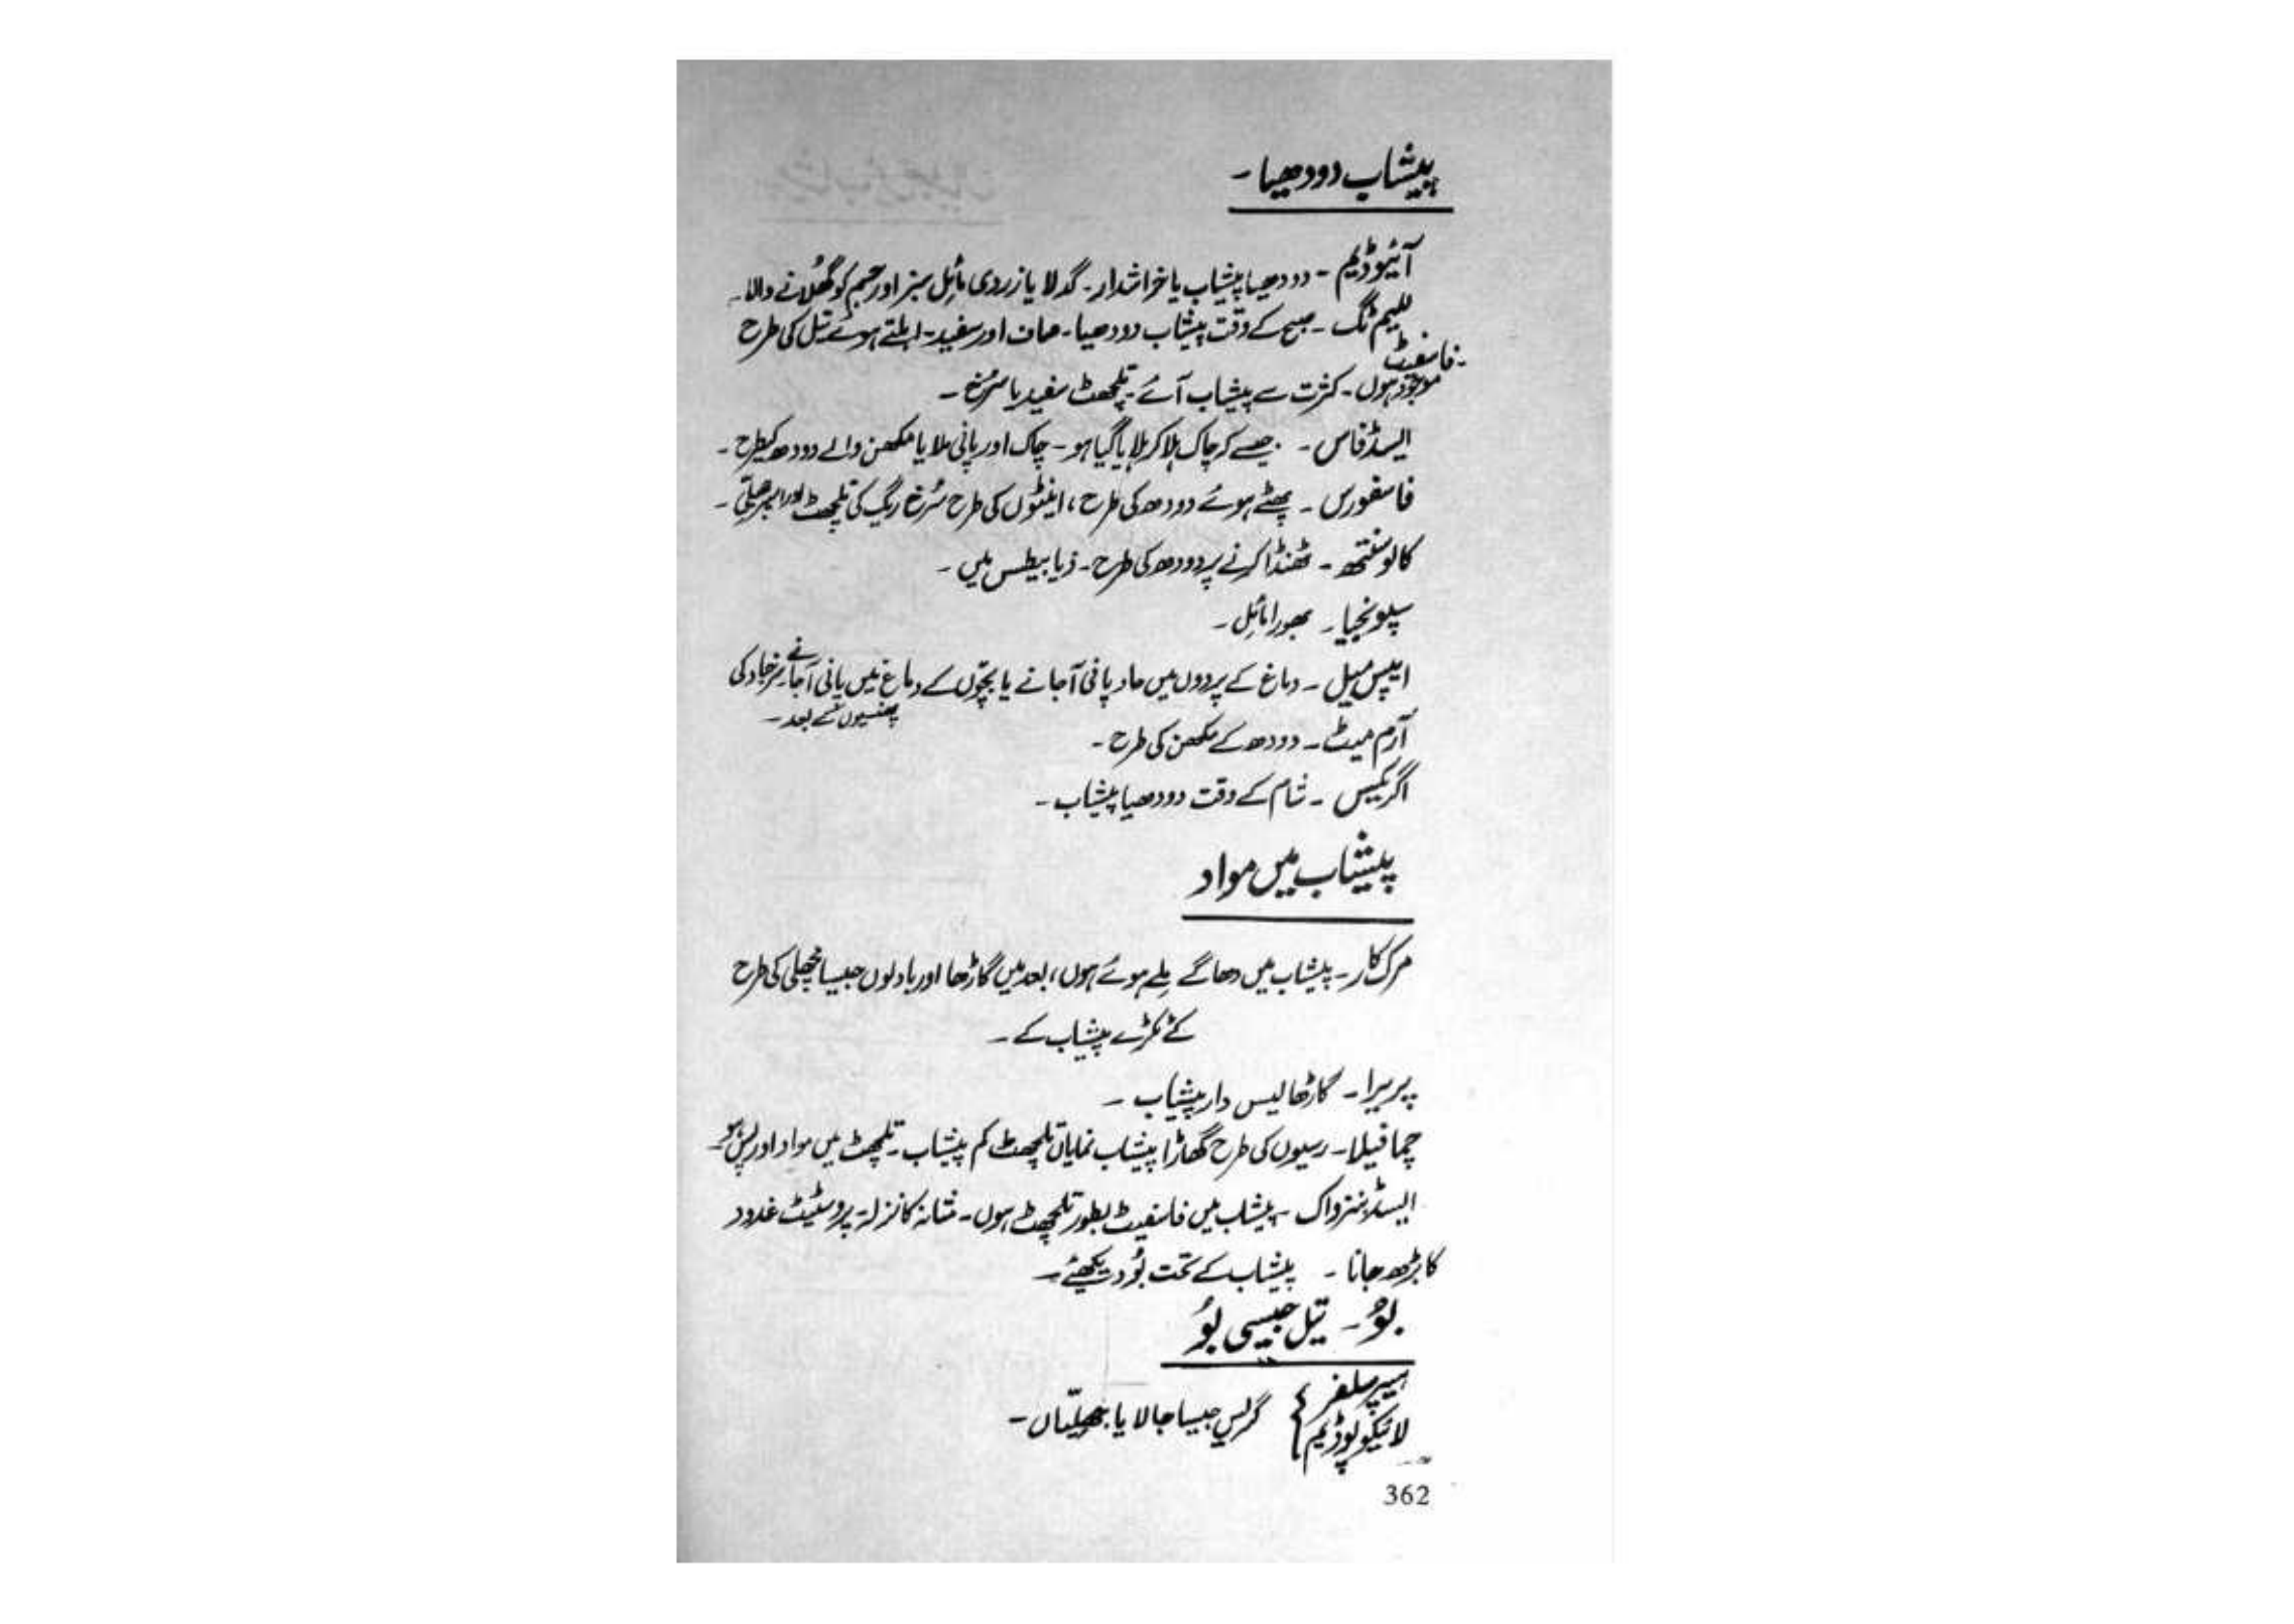 پیشاب دودھیا۔
آئیوڈیم ۔ دودھیا پیشاب یا خراشدار۔ گدلا یا زردی مائل سبز اور جسم کو گھُلانے والا۔
للیم ٹگ ۔ صبح کے وقت پیشاب دودھیا۔ صاف اور سفید۔ ابلتے ہوئے تیل کی طرح
۔ فاسفیٹ
موجود ہوں۔ کثرت سے پیشاب آئے۔ تلچھٹ سفید یا سُرخ ۔
ایسڈ فاس ۔ جیسے کہ چاک ہلا کر ملایا گیا ہو ۔ چاک اور پانی ملا یا مکھن والے دودھ کیطرح ۔
فاسفورس ۔ پھٹے ہوئے دودھ کی طرح، اینٹوں کی طرح سُرخ رنگ کی تلچھٹ اور اوپر جھلّی ۔
کالوسنتھ ۔ ٹھنڈا کرنے پر دودھ کی طرح ۔ ذیابیطس میں ۔
سپونجیا ۔ بھورا مائل ۔
ایپس میل ۔ دماغ کے پردوں میں حاد پانی آجانے یا بچّوں کے دماغ میں پانی آجانے سرخباد کی
پھنسیوں کے بعد ۔
آرم میٹ ۔ دودھ کے مکھن کی طرح ۔
اگریکس ۔ شام کے وقت دودھیا پیشاب ۔
پیشاب میں مواد
مرک کار ۔ پیشاب میں دھاگے ملے ہوئے ہوں، بعد میں گاڑھا اور بادلوں جیسا مچھلی کی طرح
کے ٹکڑے پیشاب کے ۔
پریرا ۔ گاڑھا لیس دار پیشاب ۔
چمافیلا ۔ رسیوں کی طرح گھاڑا پیشاب نمایاں تلچھٹ کم پیشاب ۔ تلچھٹ میں مواد اور پس ہو ۔
ایسڈ بنزواک ۔ پیشاب میں فاسفیٹ بطور تلچھٹ ہوں ۔ مثانہ کا نزلہ ۔ پروسٹیٹ غدود
کا بڑھ جانا ۔ پیشاب کے تحت بُو دیکھئے ۔
بُو ۔ تیل جیسی بُو
ہیپر سلفر
لائیکوپوڈیم } گریس جیسا جالا یا جھلیّاں ۔
362